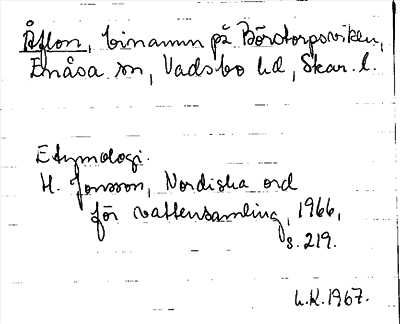 Åflon, binamn på Börstorpsviken,
Enåsa sn, Vadsbo hd, Skar. l.
Etymologi.
H. Jonsson, Nordiska ord
för vattensamling, 1966,
s. 219.
L.K. 1967.